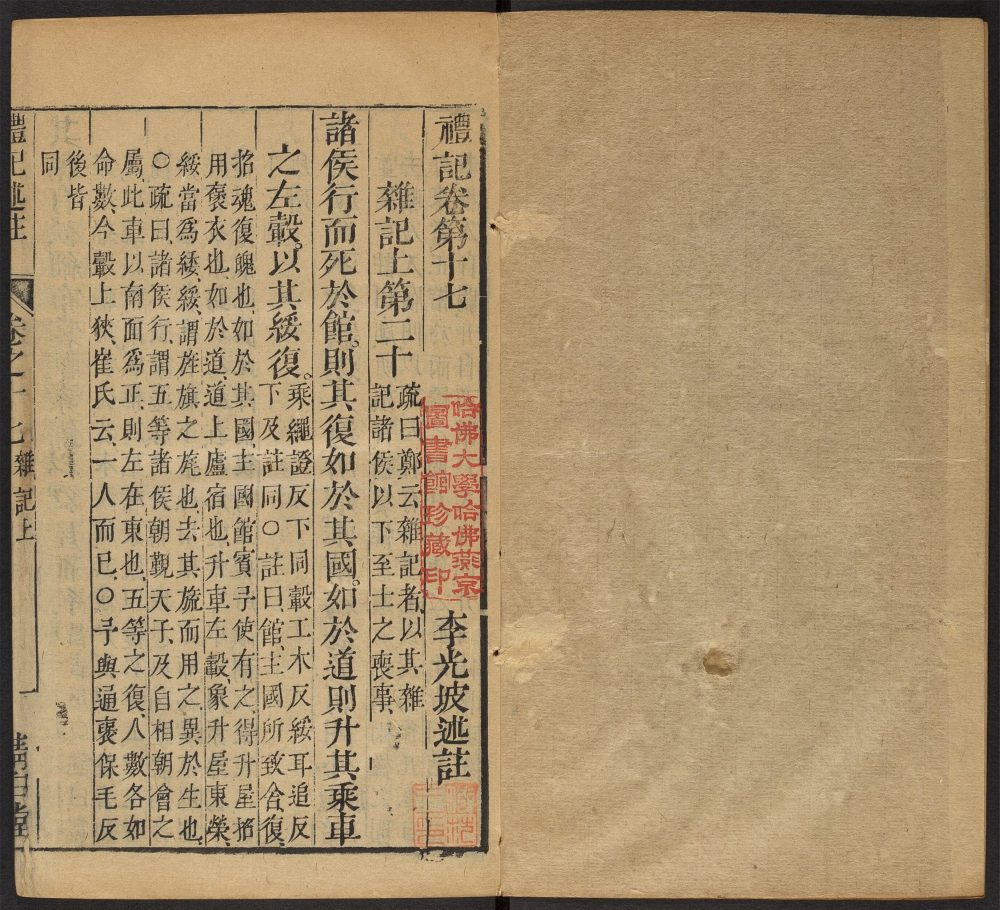 禮記卷第十七
李光坡述註
哈佛大學哈佛燕京
圖書館珍藏印
雜記上第二十
疏曰鄭云雜記者以其雜
記諸侯以下至士之喪事
諸侯行而死於館則其復如於其國如於道則升其乘車
之左轂以其綏復
乘繩證反下同轂工木反綏耳追反
下及註同〇註曰館主國所致舍復
招魂復魄也如於其國主國館賓予使有之得升屋招
用褒衣也如於道道上廬宿也升車左轂象升屋東榮
綏當爲緌緌謂旌旗之旄也去其旒而用之異於生也
〇疏曰諸侯行謂五等諸侯朝覲天子及自相朝會之
屬此車以南面爲正則左在東也五等之復人數各如
命數今轂上狹崔氏云一人而已〇予與通褒保毛反
後皆
同
禮記述註
卷之十七 雜記上